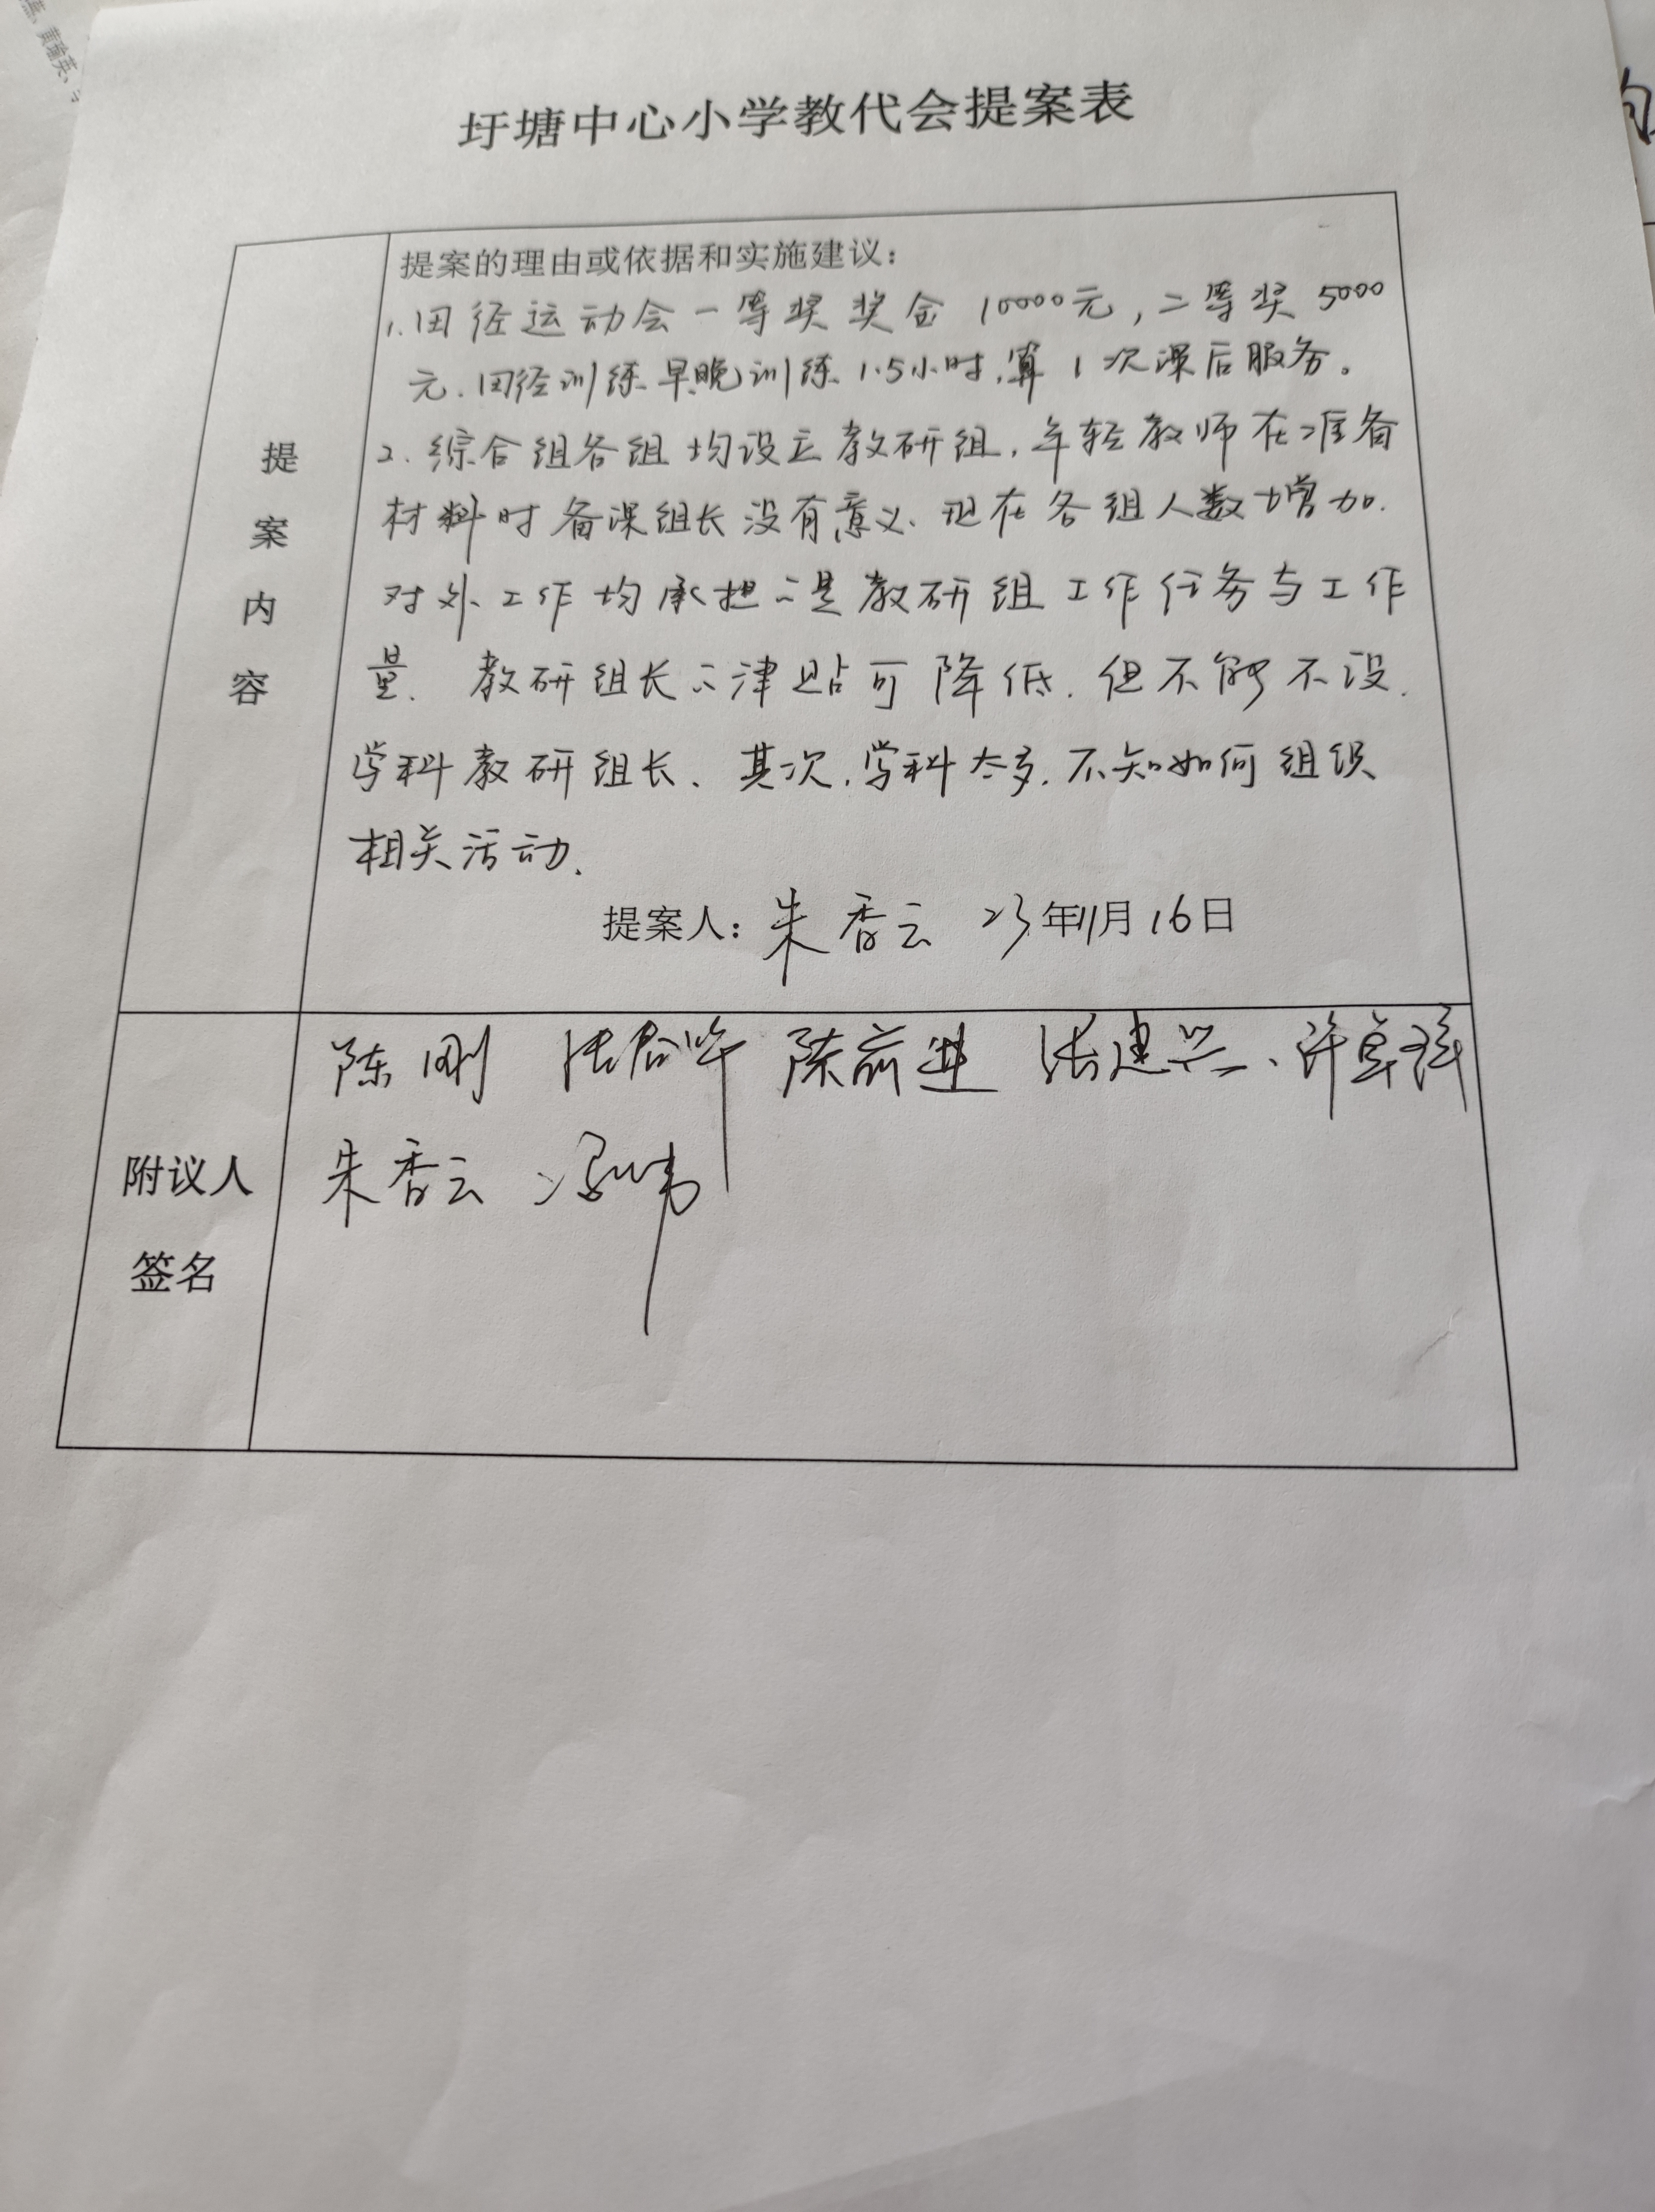 圩塘中心小学教代会提案表
提案内容
提案的理由或依据和实施建议：
1.田径运动会一等奖奖金10000元，二等奖5000
元.田径训练早晚训练1.5小时,算1次课后服务。
2.综合组各组均设立教研组,年轻教师在准备
材料时备课组长没有意义、现在各组人数增加.
对外工作均承担的是教研组工作任务与工作
量.教研组长的津贴可降低.但不能不设.
学科教研组长、其次,学科太多.不知如何组织
相关活动.
提案人：朱香云 23年11月16日
附议人
签名
陈刚 陈前进 张建兴、许卓
朱香云